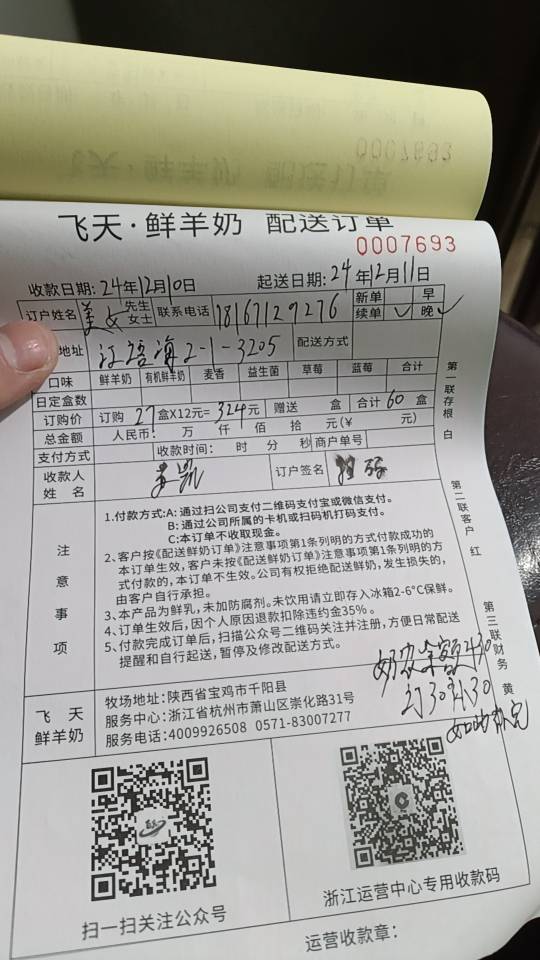 0007692
飞天·鲜羊奶 配送订单
0007693
收款日期: 24年12月10日 起送日期: 24年12月11日
订户姓名 姜女 先生 女士 联系电话 18167129276 新单 早
续单 ✓ 晚 ✓
地址 江语海2-1-3205 配送方式
口味 鲜羊奶 有机鲜羊奶 麦香 益生菌 草莓 蓝莓 合计
日定盒数
订购价 订购 27 盒X12元= 324元 赠送 盒 合计 60 盒
总金额 人民币: 万 仟 佰 拾 元(¥ 元)
支付方式 收款时间: 时 分 秒 商户单号
收款人姓名 订户签名
第一联存根 白
第二联客户 红
第三联财务 黄
注意事项
1.付款方式:A: 通过扫公司支付二维码支付宝或微信支付。
B: 通过公司所属的卡机或扫码机打码支付。
C:本订单不收取现金。
2、客户按《配送鲜奶订单》注意事项第1条列明的方式付款成功的
本订单生效,客户未按《配送鲜奶订单》注意事项第1条列明的方
式付款的,本订单不生效。公司有权拒绝配送鲜奶,发生损失的,
由客户自行承担。
3、本产品为鲜乳,未加防腐剂。未饮用请立即存入冰箱2-6°C保鲜。
4、订单生效后,因个人原因退款扣除违约金35%。
5、付款完成订单后,扫描公众号二维码关注并注册,方便日常配送
提醒和自行起送,暂停及修改配送方式。
奶农余额2430
订30补30
飞天鲜羊奶
牧场地址:陕西省宝鸡市千阳县
服务中心:浙江省杭州市萧山区崇化路31号
服务电话:4009926508 0571-83007277
扫一扫关注公众号
浙江运营中心专用收款码
运营收款章: